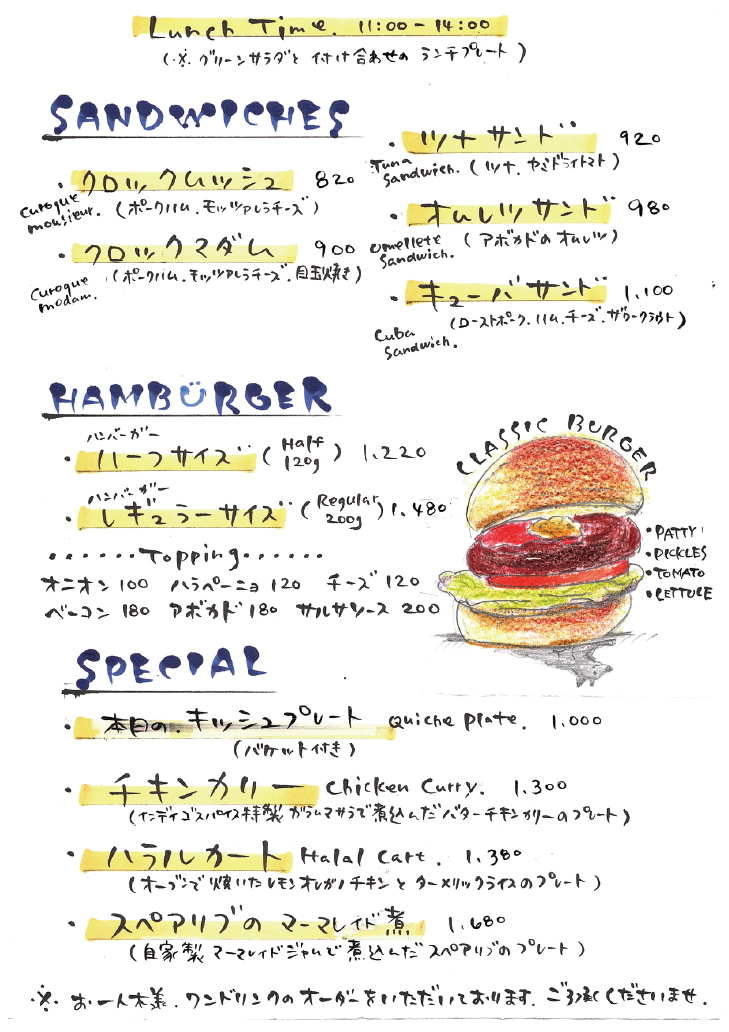 Lunch Time. 11:00-14:00
(※. グリーンサラダと 付け合わせの ランチプレート)
SANDWICHES
・クロックムッシュ 820
Curoque monsieur. (ポークハム.モッツァレラチーズ)
・クロックマダム 900
Curoque modam. (ポークハム.モッツァレラチーズ.目玉焼き)
・ツナサンド 920
Tuna Sandwich. (ツナ.セミドライトマト)
・オムレツサンド 980
Omellete Sandwich. (アボカドのオムレツ)
・キューバサンド 1,100
Cuba Sandwich. (ローストポーク.ハム.チーズ.ザワークラウト)
HAMBÜRGER
ハンバーガー
・ハーフサイズ (Half 120g) 1,220
ハンバーガー
・レギュラーサイズ (Regular 200g) 1,480
......Topping......
オニオン 100 ハラペーニョ 120 チーズ 120
ベーコン 180 アボカド 180 サルサソース 200
CLASSIC BURGER
・PATTY
・PICKLES
・TOMATO
・LETTUCE
SPECIAL
・本日の.キッシュプレート Quiche plate. 1,000
(バケット付き)
・チキンカリー Chicken Curry. 1,300
(インディゴスパイス特製 ガラムマサラで煮込んだバターチキンカリーのプレート)
・ハラルカート Halal Cart. 1,380
(オーブンで焼いたレモンオレガノチキンと ターメリックライスのプレート)
・スペアリブの マーマレイド煮 1,680
(自家製 マーマレイドジャムで煮込んだ スペアリブのプレート)
※. お一人様.ワンドリンクのオーダーをいただいております. ご了承くださいませ.